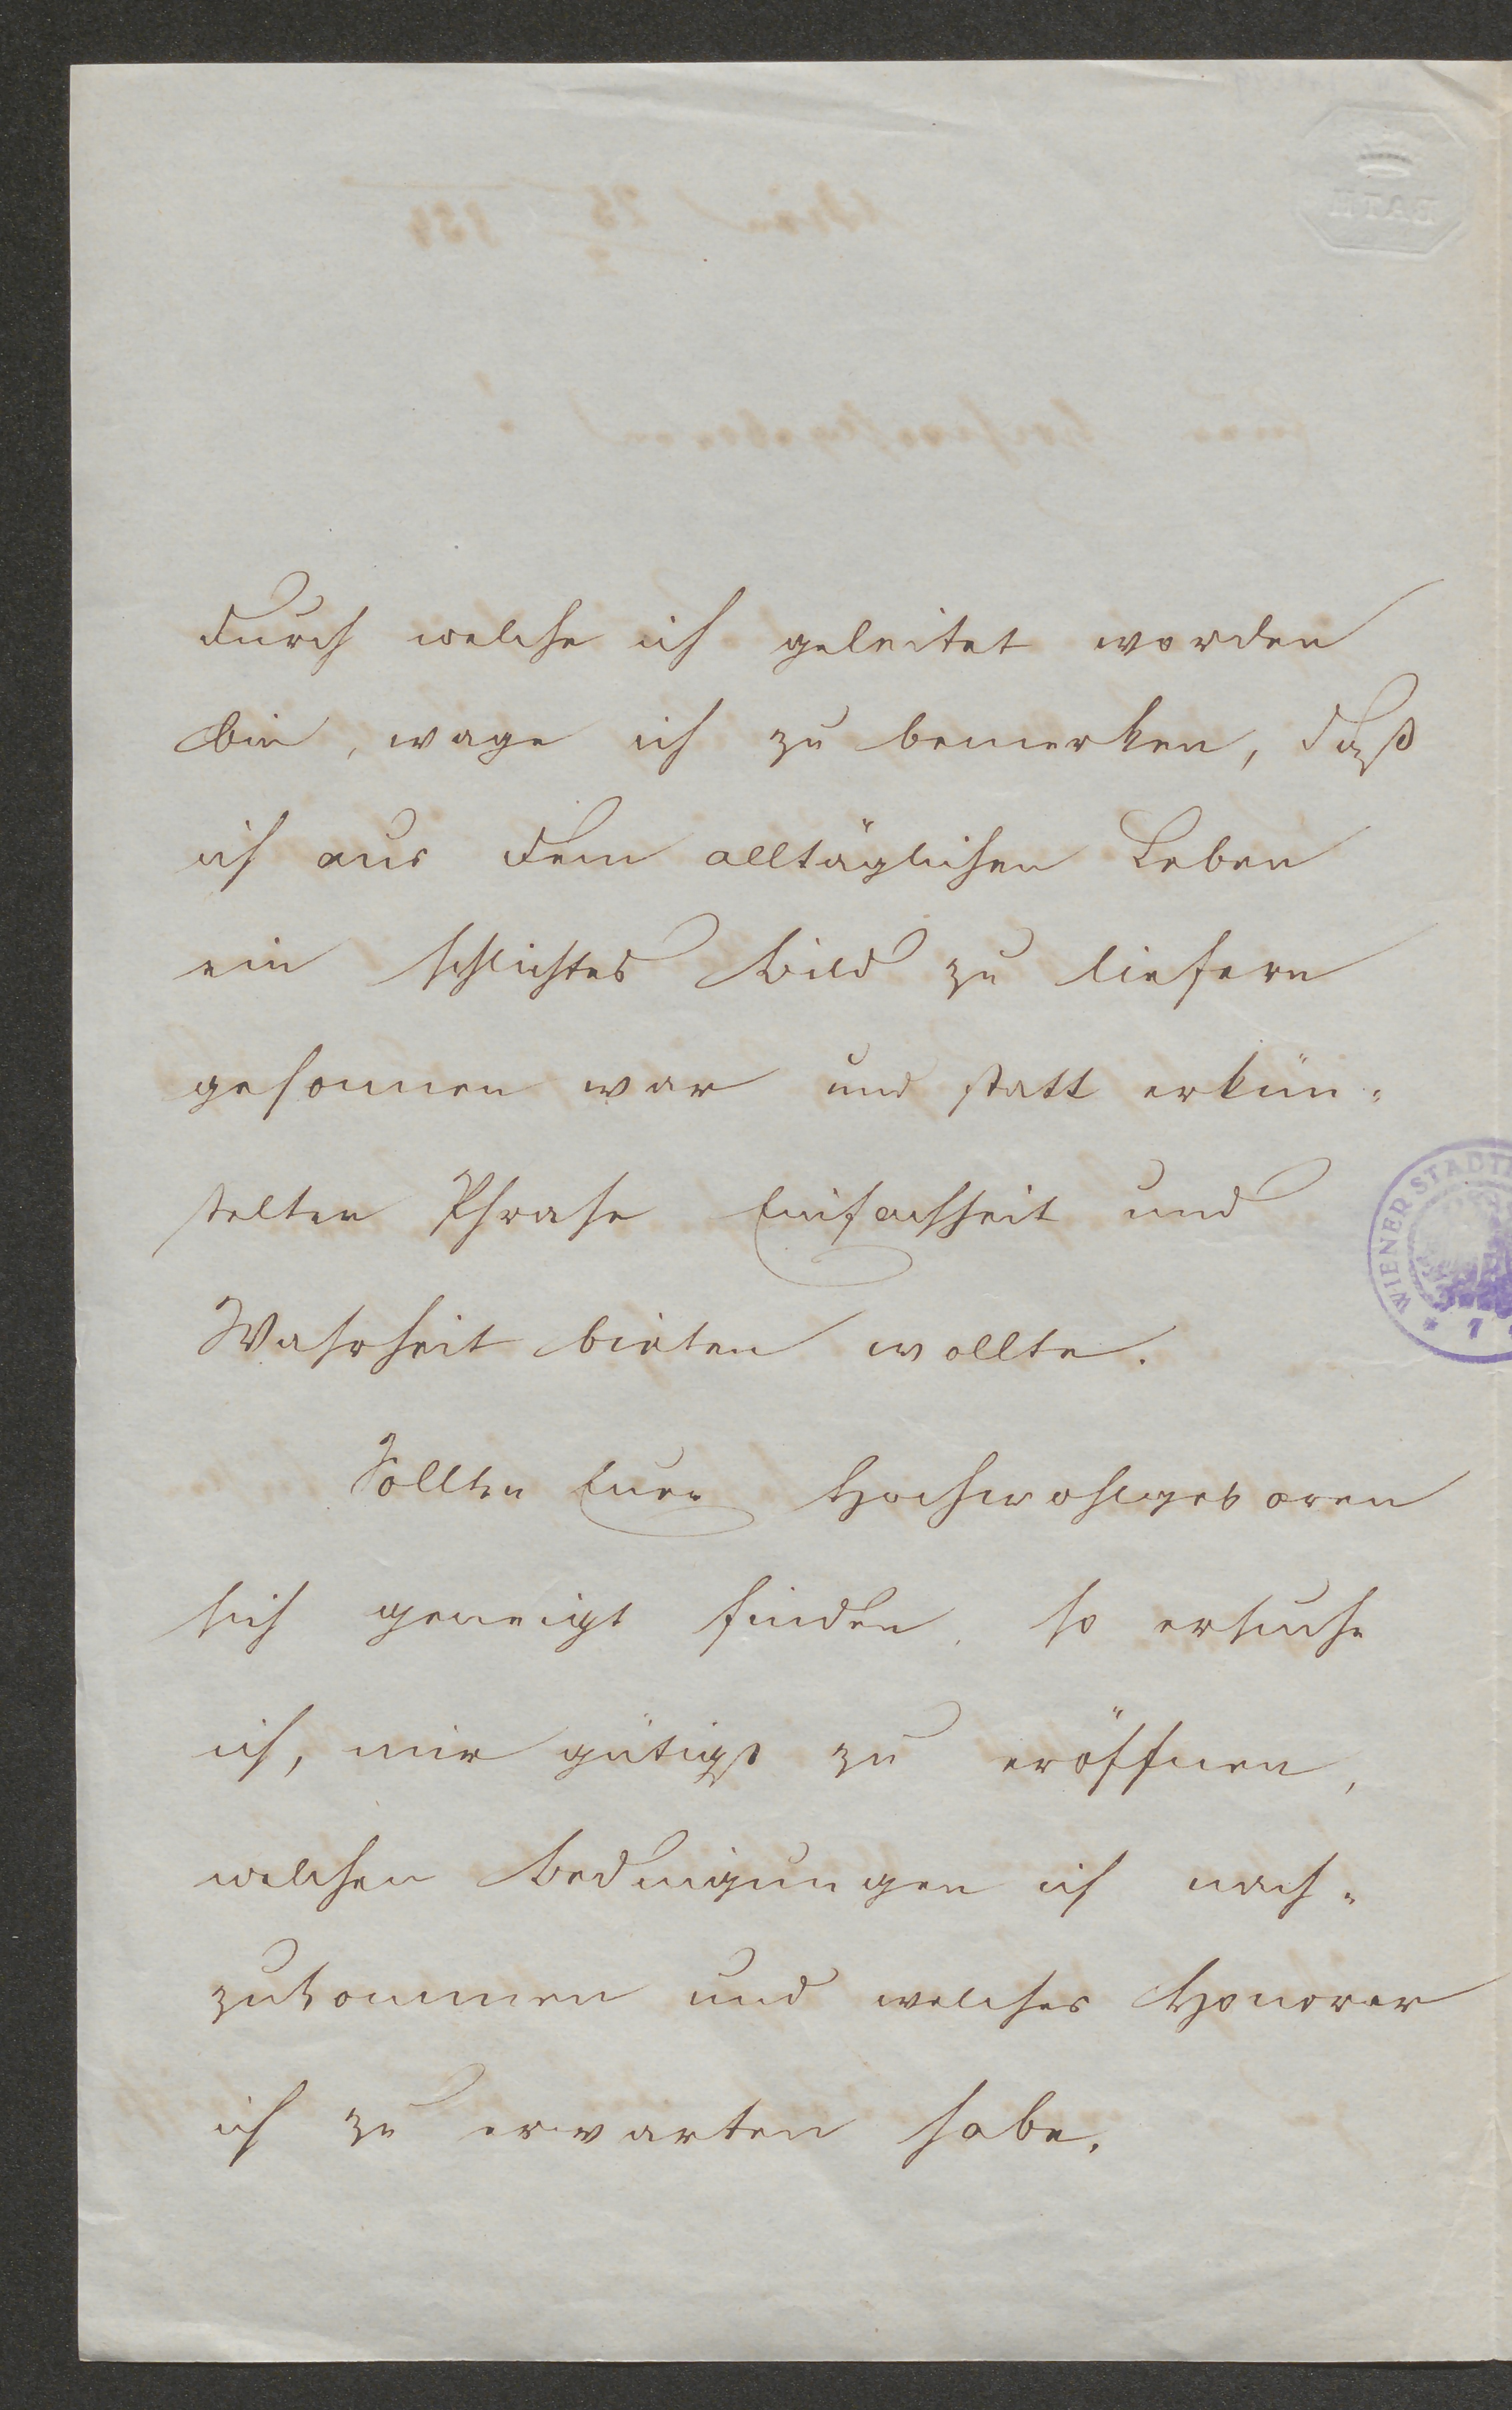 durch welche ich geleitet worden
bin, wage ich zu bemerken, daß
ich aus dem alltäglichen Leben
ein schlichtes Bild zu liefern
gesonnen war und statt erkün-
stelter Phrase Einfachheit und
Wahrheit bieten wollte.
Sollten Euer Hochwohlgeboren
sich geneigt finden, so ersuche
ich, mir gütigst zu eröffnen,
welchen Bedingungen ich nach-
zukommen und welches Honorar
ich zu erwarten habe.
BATH
WIENER STADT